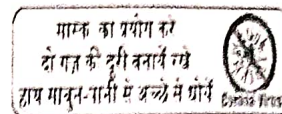 मास्क का प्रयोग करें
दो गज़ की दूरी बनायें रखें
हाथ साबुन-पानी से अच्छे से धोयें
Corona Virus